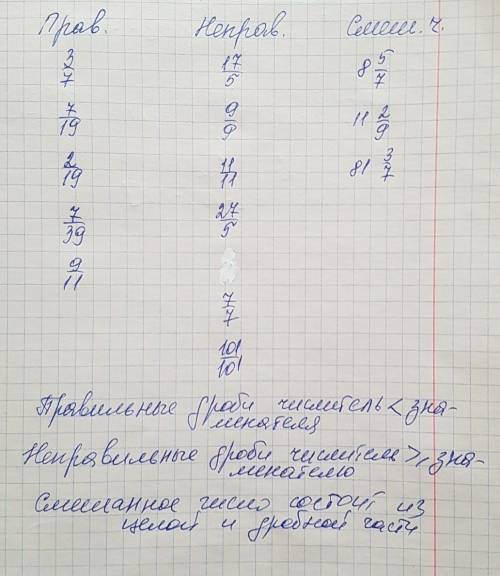 Прав. Неправ. Смеш. ч.
3/7 17/5 8 5/7
7/19 9/9 11 2/9
2/19 11/11 81 3/7
7/39 27/5
9/11
7/7
101/101
Правильные дроби числитель < зна-
менателя
Неправильные дроби числитель ⩾ зна-
менателю
Смешанное число состоит из
целой и дробной части